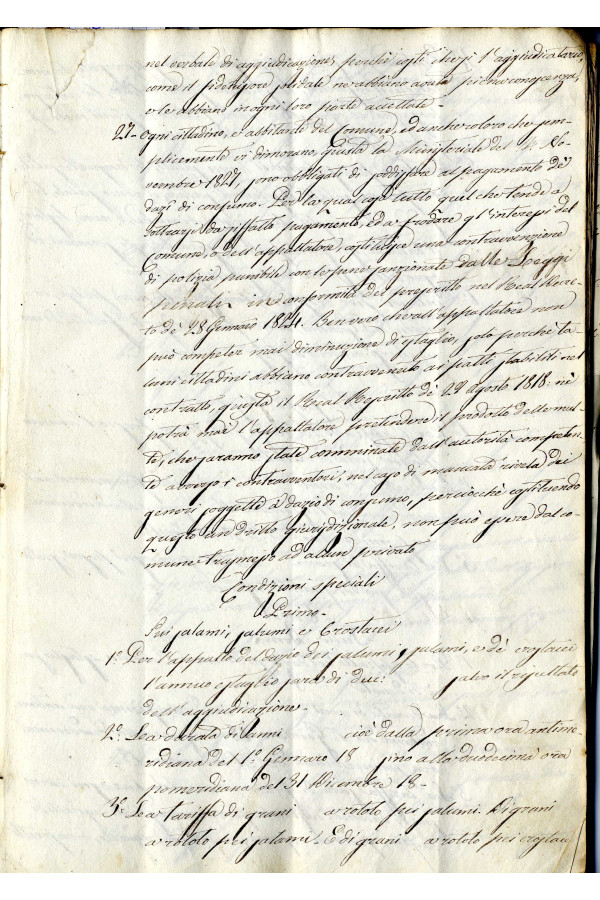 nel verbale di aggiudicazione, perchè così che si l'aggiudicatario,
come il fidejussore solidale ne abbiano avuta piena conoscenza,
e le abbiano in ogni loro parte accettate -
27.- Ogni cittadino, e abitante del Comune, ed anche coloro che sem-
plicemente vi dimorano, giusta la Ministeriale del No-
vembre 1827, sono obbligati di soddisfare al pagamento de'
dazi di consumo. Per la qual cosa tutto quel che tende a
sottrarsi da siffatto pagamento, ed a frodare gl'interessi del
Comune, o dell'appaltatore, costituisce una contravvenzione
di polizia punibile con le pene sanzionate dalle Leggi
penali in conformità del prescritto nel Real Decre-
to de' 28 Gennaro 1824. Ben vero che all'appaltatore non
può competer mai diminuzione di estaglio, solo perchè ta-
luni cittadini abbiano contravvenuto ai patti stabiliti nel
contratto, giusta il Real Rescritto de' 29 agosto 1818: nè
potrà mai l'appaltatore pretendere il prodotto delle mul-
te, che saranno state comminate dall'autorità competen-
te a carico i contravventori, nel caso di mancata rivela dei
generi soggetti a dazio di consumo, perciocchè costituendo
questo un dritto giurisdizionale, non può essere dal co-
mune trasmesso ad alcun privato
Condizioni speciali
Primo -
Sui salami, salumi e Crostacei
1.° Per l'appalto del dazio dei salumi, salami, e de' crostacei
l'annuo estaglio sarà di duc: salvo il risultato
dell'aggiudicazione -
2.° La durata di anni cioè dalla prima ora antime-
ridiana del 1.° Gennaro 18 sino alla duodecima ora
pomeridiana del 31 Dicembre 18 -
3.° La tariffa di grani a rotolo sui salumi. Di grani
a rotolo sui salami. E di grani a rotolo sui crostacei